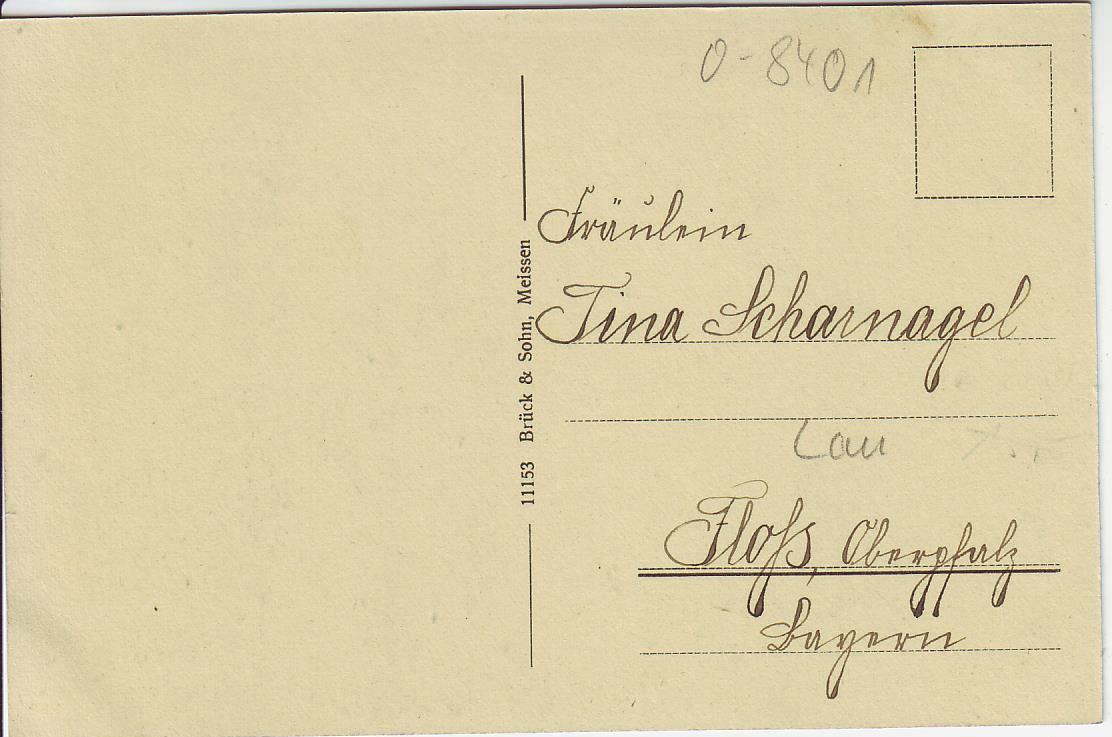 0-8401
11153 Brück & Sohn, Meissen
Fräulein
Tina Scharnagel
Lau
Floß, Oberpfalz
Bayern